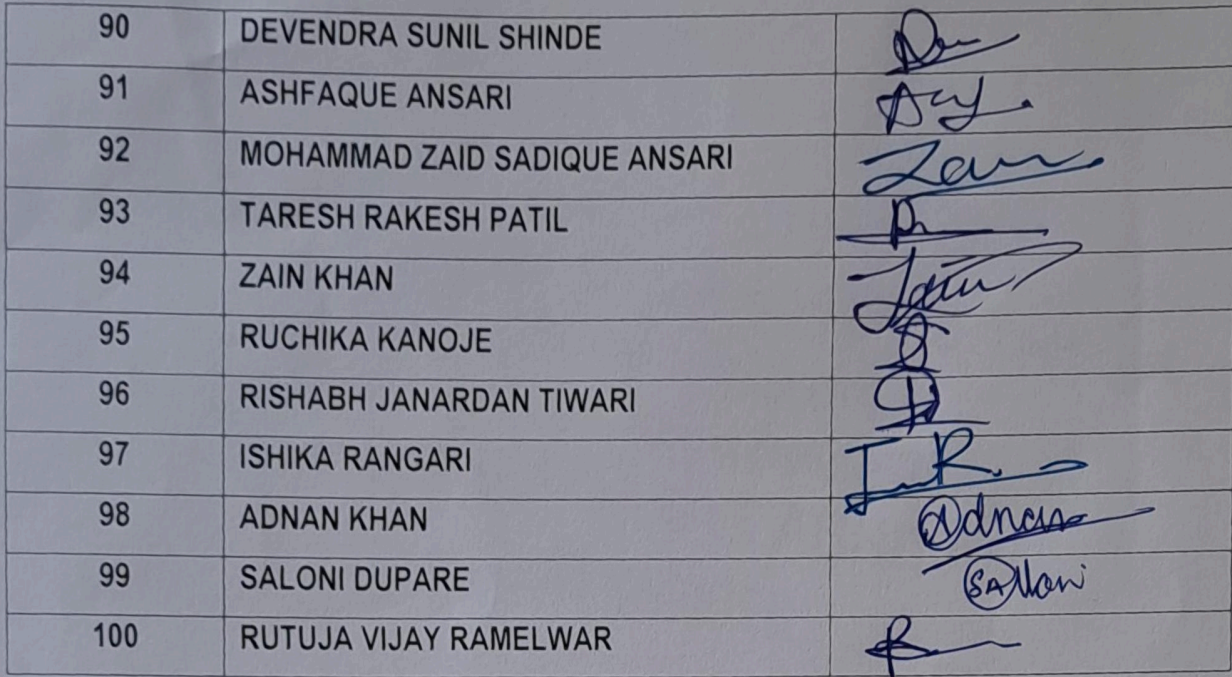 90 DEVENDRA SUNIL SHINDE
91 ASHFAQUE ANSARI
92 MOHAMMAD ZAID SADIQUE ANSARI
93 TARESH RAKESH PATIL
94 ZAIN KHAN
95 RUCHIKA KANOJE
96 RISHABH JANARDAN TIWARI
97 ISHIKA RANGARI
98 ADNAN KHAN Adnan
99 SALONI DUPARE
100 RUTUJA VIJAY RAMELWAR